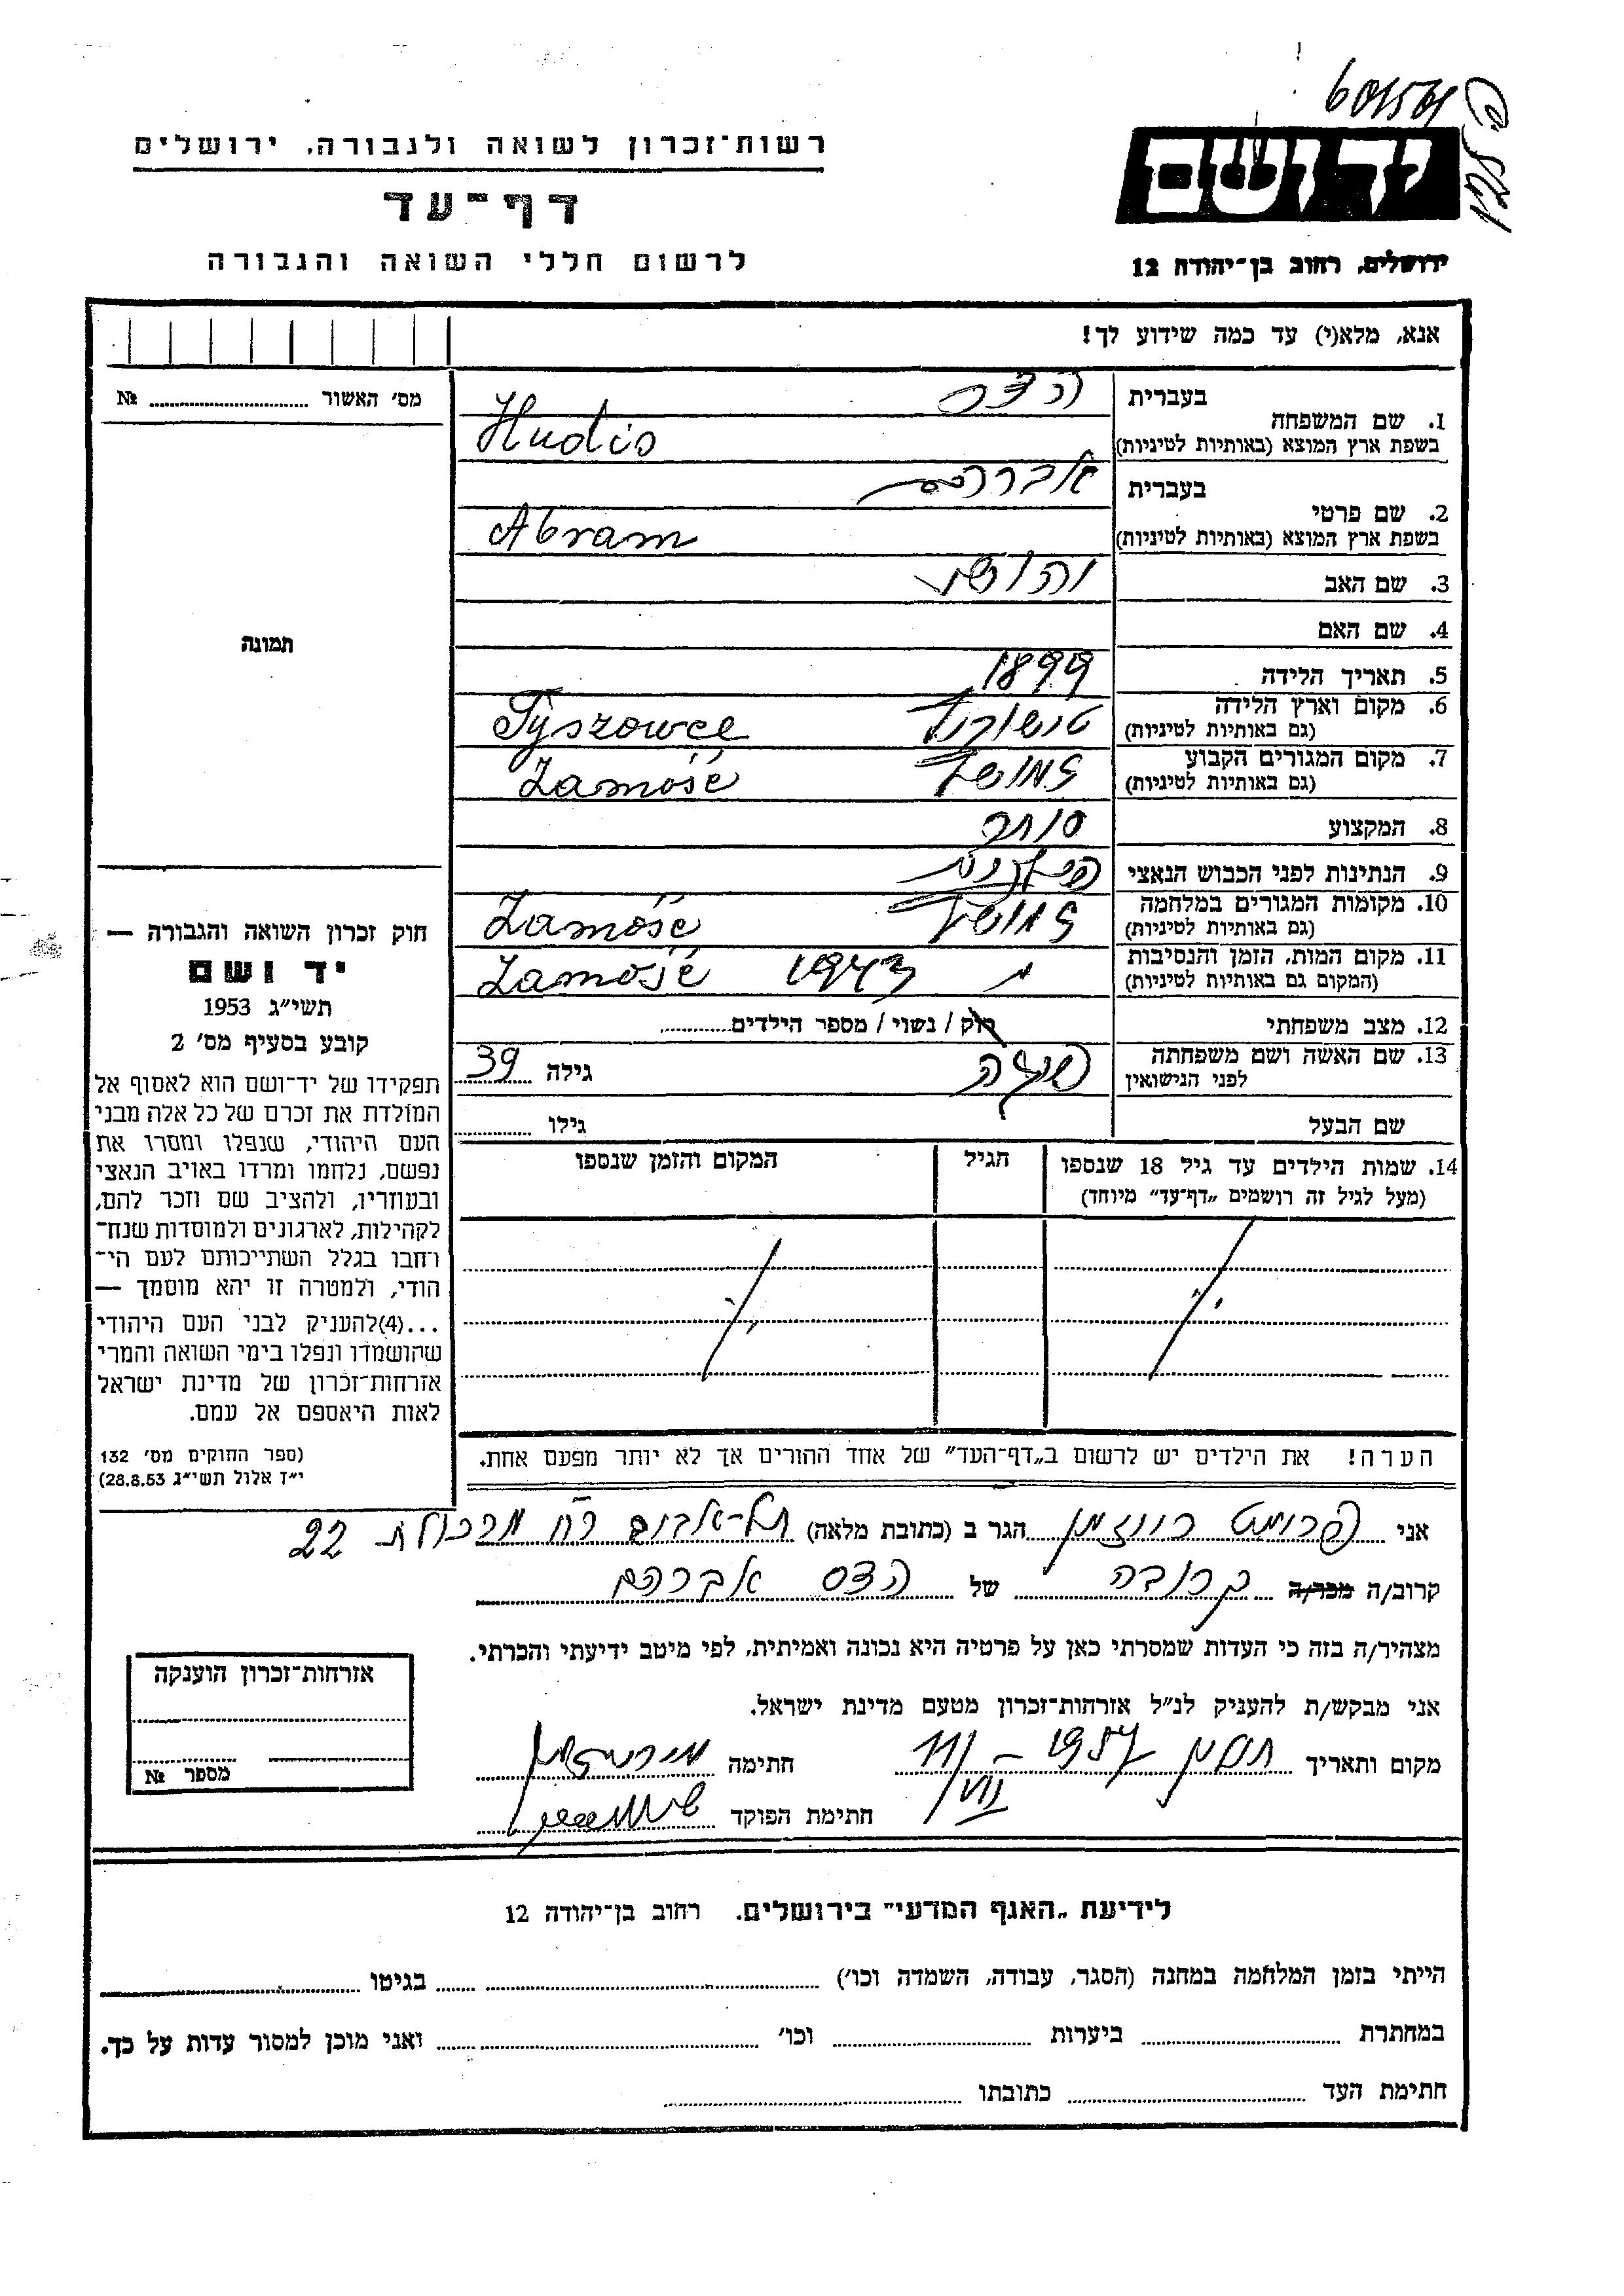 רשות־זכרון לשואה ולגבורה, ירושלים
דף־עד
לרשום חללי השואה והגבורה
ידושם
ירושלים, רחוב בן־יהודה 12
אנא, מלא(י) עד כמה שידוע לך!
מס׳ האשור № ....................
תמונה
1. שם המשפחה
בעברית
בשפת ארץ המוצא (באותיות לטיניות) Hudis
2. שם פרטי
בעברית אברהם
בשפת ארץ המוצא (באותיות לטיניות) Abram
3. שם האב
4. שם האם
5. תאריך הלידה 1899
6. מקום וארץ הלידה
(גם באותיות לטיניות) Tyszowce
7. מקום המגורים הקבוע
(גם באותיות לטיניות) Zamość
8. המקצוע סוחר
9. הנתינות לפני הכבוש הנאצי
10. מקומות המגורים במלחמה
(גם באותיות לטיניות) Zamość
11. מקום המות, הזמן והנסיבות
(המקום גם באותיות לטיניות) Zamość 1943
12. מצב משפחתי רוק / נשוי / מספר הילדים..........
13. שם האשה ושם משפחתה
לפני הנישואין
גילה 39
שם הבעל גילו ..........
14. שמות הילדים עד גיל 18 שנספו
(מעל לגיל זה רושמים „דף־עד״ מיוחד)
הגיל
המקום והזמן שנספו
הערה! את הילדים יש לרשום ב„דף־העד״ של אחד ההורים אך לא יותר מפעם אחת.
חוק זכרון השואה והגבורה —
יד ושם
תשי״ג 1953
קובע בסעיף מס׳ 2
תפקידו של יד־ושם הוא לאסוף אל
המולדת את זכרם של כל אלה מבני
העם היהודי, שנפלו ומסרו את
נפשם, נלחמו ומרדו באויב הנאצי
ובעוזריו, ולהציב שם וזכר להם,
לקהילות, לארגונים ולמוסדות שנח־
רחבו בגלל השתייכותם לעם הי־
הודי, ולמטרה זו יהא מוסמך —
...(4)להעניק לבני העם היהודי
שהושמדו ונפלו בימי השואה והמרי
אזרחות־זכרון של מדינת ישראל
לאות היאספם אל עמם.
(ספר החוקים מס׳ 132
י״ז אלול תשי״ג 28.8.53)
אני הגר ב (כתובת מלאה) תל-אביב רח 22
קרוב/ה מכר/ה קרובה של הדס אברהם
מצהיר/ה בזה כי העדות שמסרתי כאן על פרטיה היא נכונה ואמיתית, לפי מיטב ידיעתי והכרתי.
אני מבקש/ת להעניק לנ״ל אזרחות־זכרון מטעם מדינת ישראל.
מקום ותאריך 11/VII - 1957 חתימה
חתימת הפוקד
אזרחות־זכרון הוענקה
מספר №
לידיעת „האגף המדעי״ בירושלים. רחוב בן־יהודה 12
הייתי בזמן המלחמה במחנה (הסגר, עבודה, השמדה וכו׳) .................... בגיטו ....................
במחתרת .................... ביערות .................... וכו׳ .................... ואני מוכן למסור עדות על כך.
חתימת העד .................... כתובתו ....................